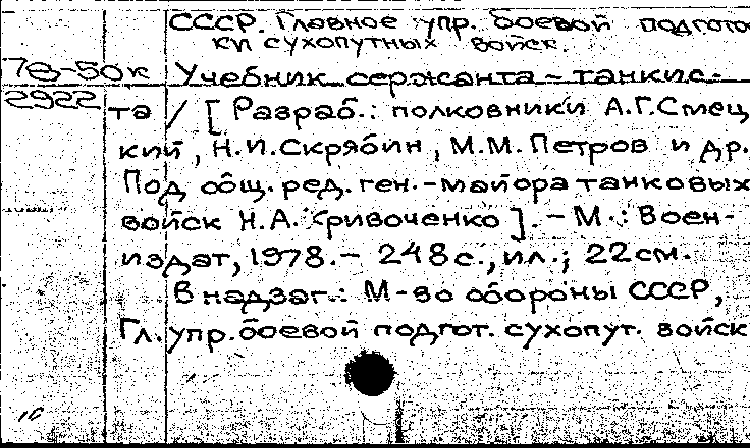 СССР. Главное упр. боевой подгото
ки сухопутных войск.
78-50к Учебник сержанта-танкис-
2922 та / [Разраб.: полковники А.Г.Смец
кий, Н.И.Скрябин, М.М.Петров и др.
Под общ. ред. ген.-майора танковых
войск Н.А.Кривоченко]. - М.: Воен-
издат, 1978. - 248 с., ил.; 22 см.
В надзаг.: М-во обороны СССР,
Гл. упр. боевой подгот. сухопут. войск